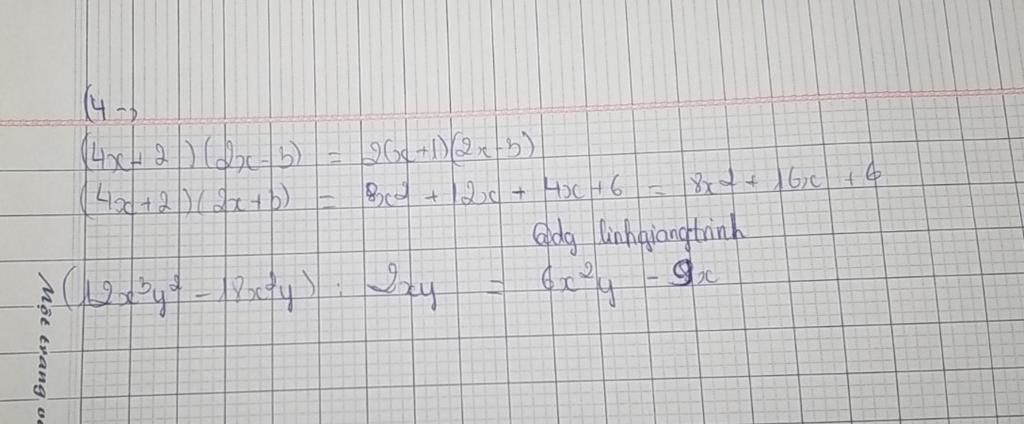 (4 →
(4x+2)(2x-3) = 2(x+1)(2x-3)
(4x+2)(2x+3) = 8x² + 12x + 4x + 6 = 8x² + 16x + 6
@dg linhgiangtrinh
(12x³y² - 18x²y) : 2xy = 6x²y - 9x
Một trang